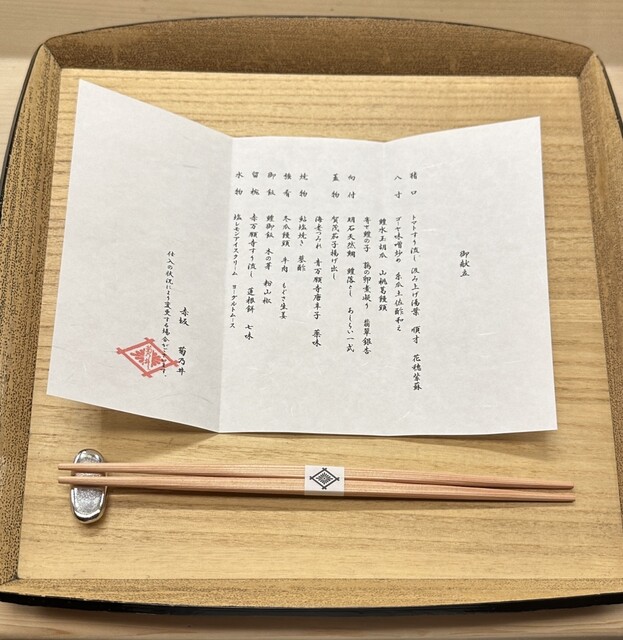 御献立
猪口 トマトすり流し 汲み上げ湯葉 順才 花穂紫蘇
八寸 ゴーヤ味噌炒め 糸瓜土佐酢和え
鱧水玉胡瓜 山桃葛饅頭
鱧の子 の卵 煮凝り 翡翠銀杏
向付 明石天然鯛 鱧落とし あしらい一式
蓋物 賀茂茄子揚げ出し
海老つみれ 青万願寺唐辛子 薬味
焼物 鮎塩焼き 蓼酢
強肴 冬瓜饅頭 牛肉 もぐさ生姜
御飯 鱧御飯 木の芽 粉山椒
留椀 赤万願寺すり流し 蓮根餅 七味
水物 塩レモンアイスクリーム ヨーグルトムース
赤坂 菊乃井
仕入の状況により変更する場合がございます。